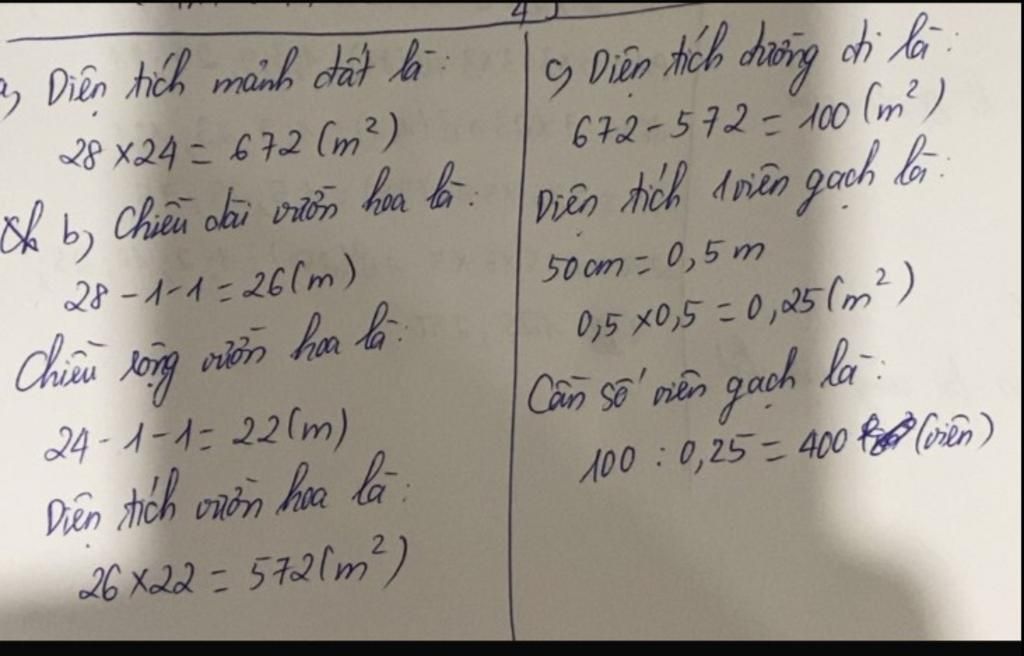 a, Diện tích mảnh đất là:
28 × 24 = 672 (m²)
b, Chiều dài vườn hoa là:
28 - 1 - 1 = 26 (m)
Chiều rộng vườn hoa là:
24 - 1 - 1 = 22 (m)
Diện tích vườn hoa là:
26 × 22 = 572 (m²)
c, Diện tích đường đi là:
672 - 572 = 100 (m²)
Diện tích 1 viên gạch là:
50 cm = 0,5 m
0,5 × 0,5 = 0,25 (m²)
Cần số viên gạch là:
100 : 0,25 = 400 (viên)